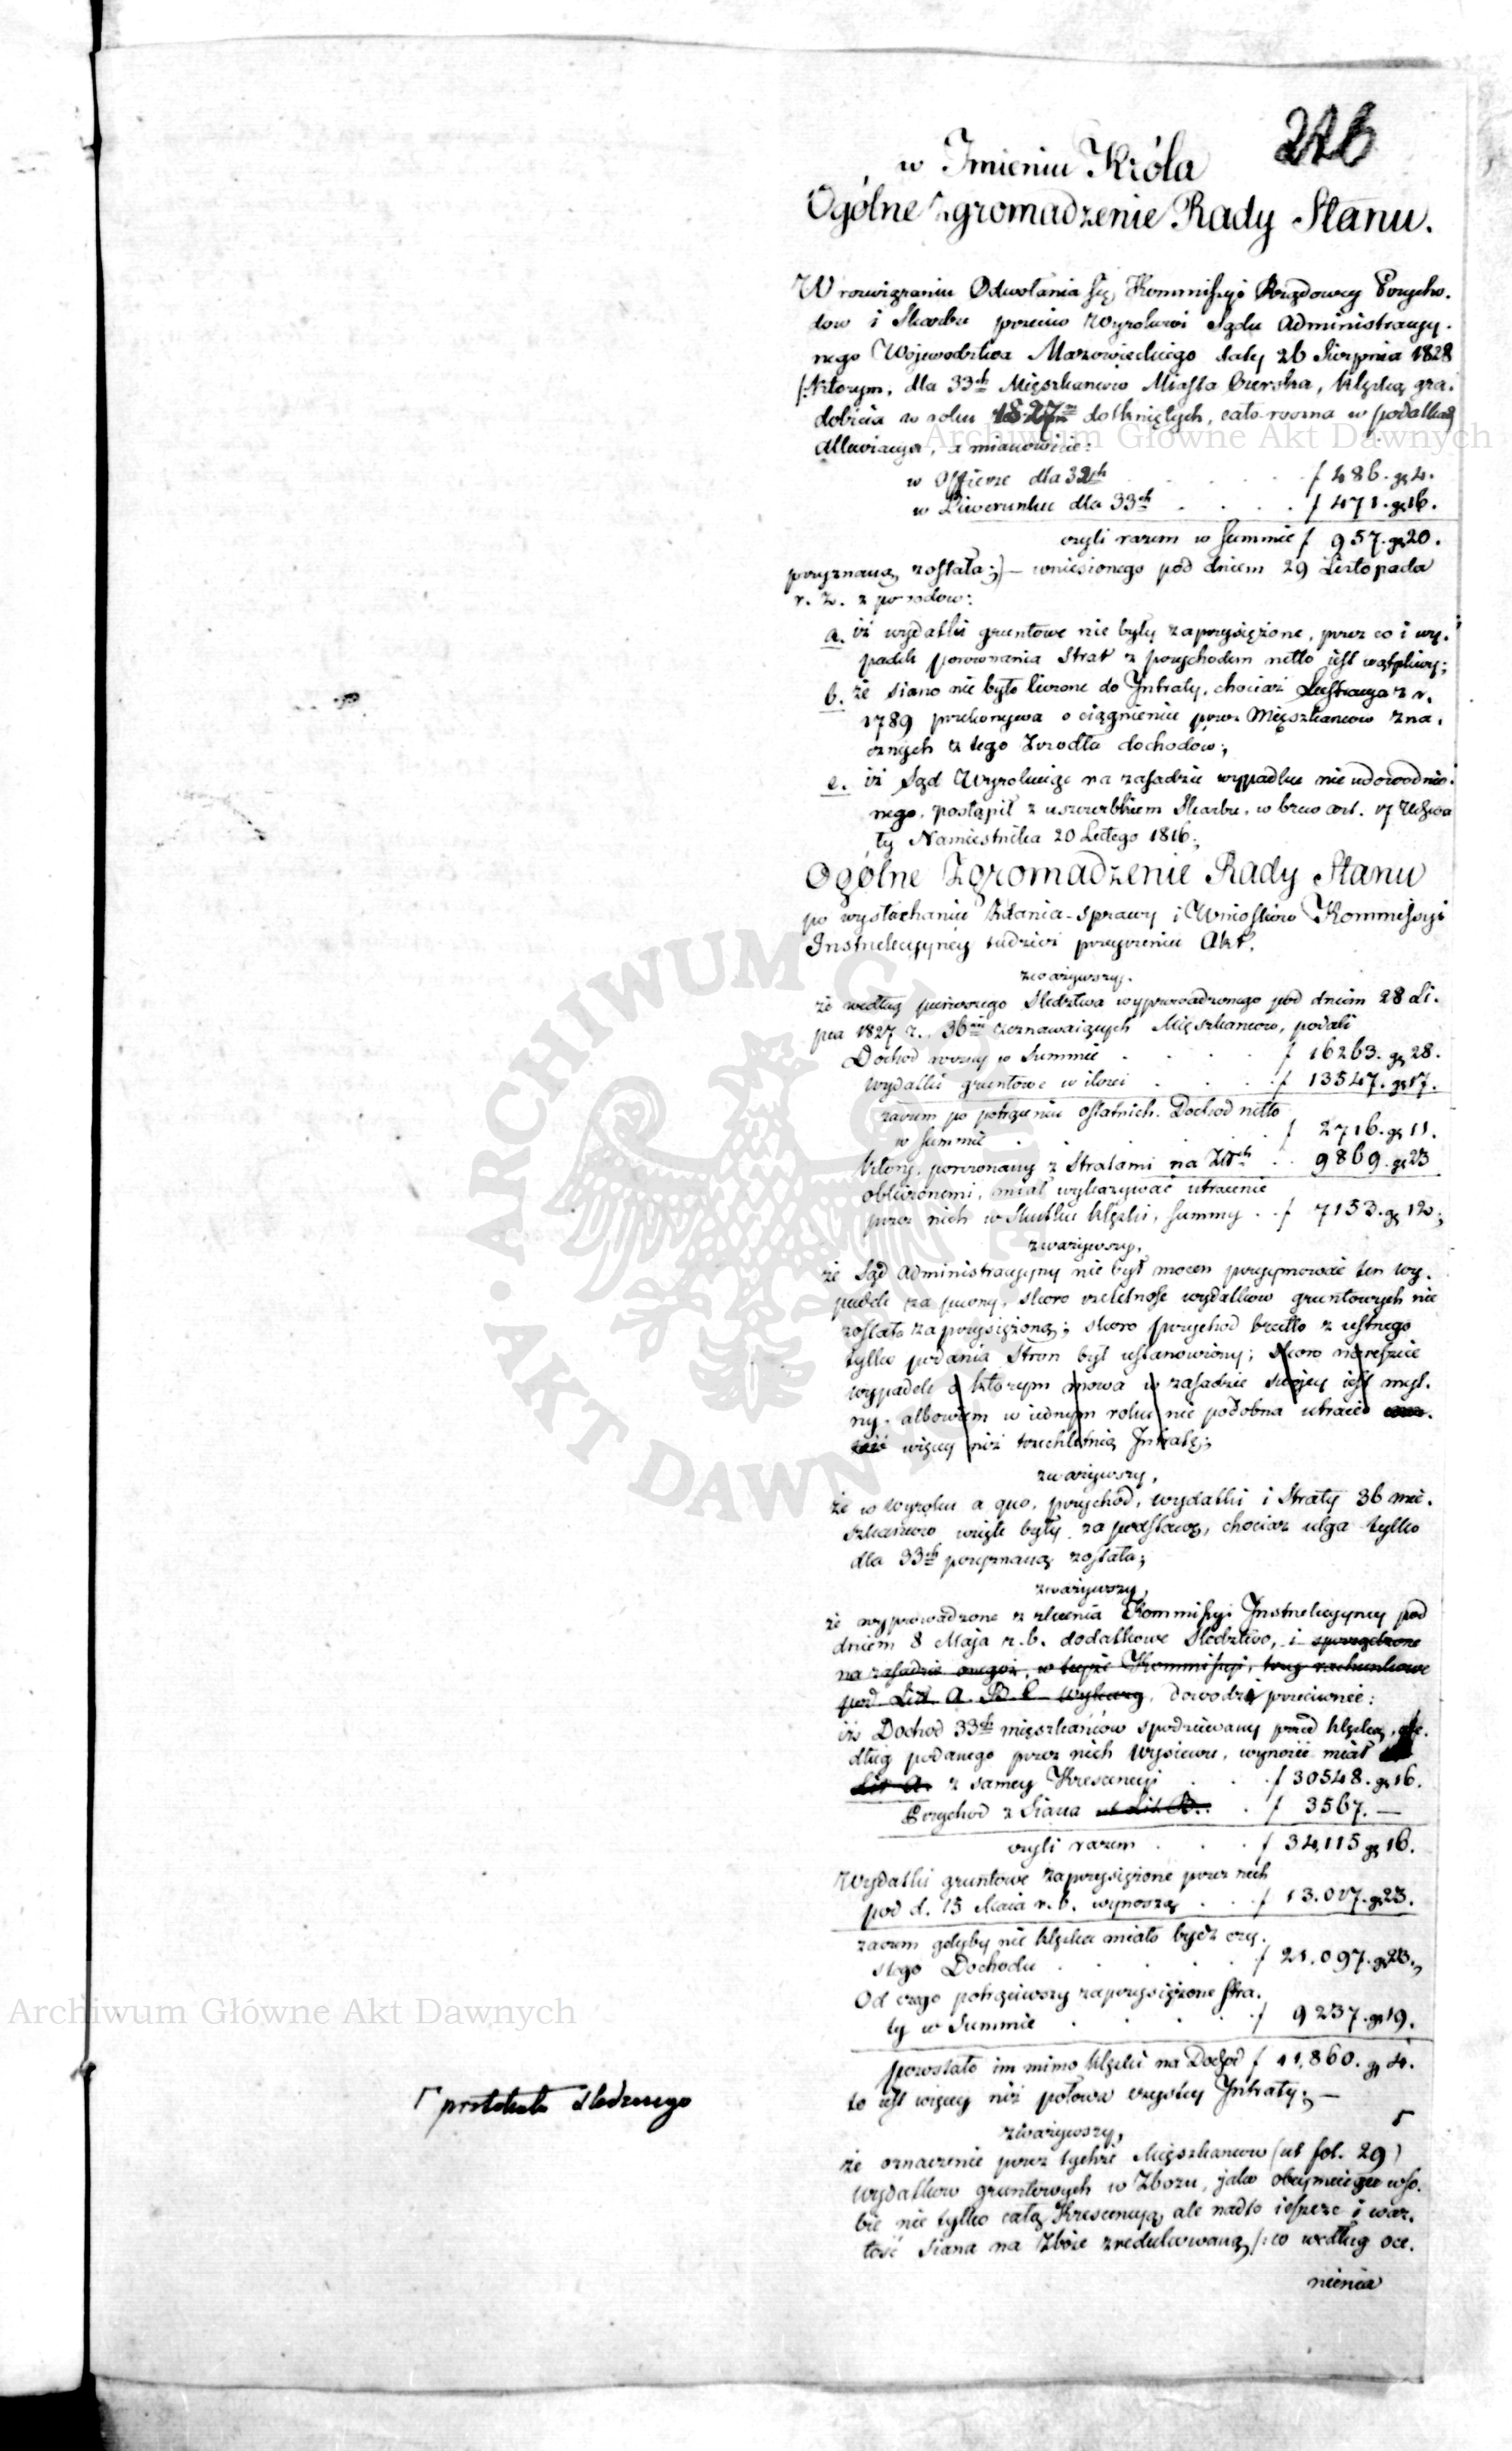 w Imieniu Króla
Ogólne Zgromadzenie Rady Stanu.
W rozwiązaniu Odwołania się Kommissyi Rządowey Przycho-
dow i Skarbu przeciw Wyrokowi Sądu Administracyy-
nego Województwa Mazowieckiego daty 26 Sierpnia 1828
/:Którym, dla 33ch Mięszkancow Miasta Czerska, klęską gra-
dobicia w roku 1827m dotkniętych, cało-roczna w podatkach
allewiacya, a mianowicie:
w Offierze dla 32ch . . . . . f 486. gr 4.
w Liwerunku dla 33ch . . . . f 471. gr 16.
czyli razem w Summie f 957. gr 20.
przyznaną została:/ — wniesionego pod dniem 29 Listopada
r. z. z powodow:
a. iż wydatki gruntowe nie były zaprzysiężone, przez co i wy-
padek porownania Strat z przychodem netto iest wątpliwy;
b. że siano nie było liczone do Intraty, chociaż Lustracya z r.
1789 przekonywa o ciągnieniu przez Mięszkancow zna-
cznych z tego źrodła dochodów;
c. iż Sąd Wyrokuiąc na zasadzie wypadku nie udowodnio-
nego, postąpił z uszczerbkiem Skarbu, w brew art. 17 Uchwa
ły Namiestnika 20 Lutego 1816;
Ogólne Zgromadzenie Rady Stanu
po wysłuchaniu Zdania-sprawy i Wniosków Kommissyi
Instrukcyyney tudzież przeyrzeniu Akt.
zważywszy.
że według pierwszego Sledztwa wyprowadzonego pod dniem 28 Li-
pca 1827 r., 36ciu zeznawaiących Mięszkancow, podali
Dochod roczny w Summie . . . . f 16263. gr 28.
wydatki gruntowe w ilosci . . . . f 13547. gr 17.
zatem po potrąceniu ostatnich. Dochod netto
w summie . . . . f 2716. gr 11.
który, porownany z Stratami na . . 9869. gr 23
obliczonemi, miał wykazywać utracenie
przez nich w Skutku klęski, summy . . f 7153. gr 12;
zważywszy,
że Sąd Administracyyny nie był mocen przyymować ten wy-
padek za pewny, skoro rzetelność wydatkow gruntowych nie
została zaprzysiężoną; skoro przychod brutto z ustnego
tylko podania Stron był ustanowiony; skoro nareszcie
wypadek o którym mowa w zasadzie swojey iest myl-
ny, albowiem w iednym roku nie podobna utracić
więcey niż trzechletnią Intratę;
zważywszy,
że w wyroku a quo, przychod, wydatki i Straty 36 mie-
szkancow wzięte były za podstawę, chociaż ulga tylko
dla 33ch przyznaną została;
zważywszy,
że wyprowadzone z zlecenia Kommissyi Instrukcyyney pod
dniem 8 Maja r. b. dodatkowe Sledztwo, i sporządzone
na zasadzie onegoż, w teyże Kommissyi, trzy rachunkowe
pod Lit. A. B. C. Wykazy, dowodzi przeciwnie:
iż Dochod 33ch mięszkańców spodziewany przed klęską, we-
dług podanego przez nich Wysiewu, wynosić miał
Lit A. z samey Krescencyi . . . f 30548. gr 16.
Przychod z Siana ut Lit. B. . f 3567. —
czyli razem . . . f 34,115 gr 16.
Wydatki gruntowe zaprzysiężone przez nich
pod d. 15 Maia r. b. wynoszą . . . f 13.017. gr 23.
zatem gdyby nie klęska miało bydź czy-
stego Dochodu . . . . f 21.097. gr 23.,
Od czego potrąciwszy zaprzysiężone stra-
ty w Summie . . . . f 9237. gr 19.
pozostało im mimo klęski na Dochod f 11,860. gr 4.
to iest więcey niż połowa czystey Intraty; —
zważywszy,
że oznaczenie przez tychże Mięszkancow (ut fol. 29)
wydatkow gruntowych w Zbożu, jako obeymuiące w so-
bie nie tylko całą Krescencyą, ale nadto ieszcze i war-
tość Siana na Zboże zredukowaną /:co według oce-
nienia
Γ protokułu śledczego
Archiwum Główne Akt Dawnych
Archiwum Główne Akt Dawnych
ARCHIWUM GŁÓWNE • AKT DAWNYCH •